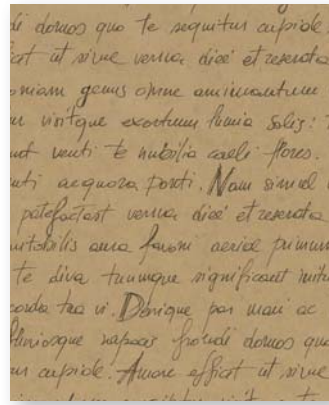 di domos quo te sequitur cupide.
ficit ut sirue verna diéé et reserata
oniam genus omne animantum
ur visitque exortum lumia solis:
unt venti te nubilia caeli flores.
enti aequora ponti. Nam simul
patefactast verna diéé et reserata
nitabilis aura favoni aeriae primum
te diva tuumque significant initu
corda tua vi. Denique par mari ac
fluviosque rapaces frondi domos quo
ur cupide. Amore efficit ut sirue